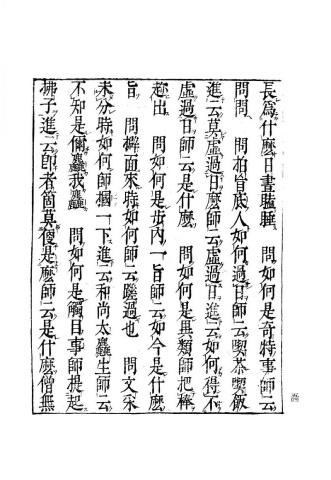 長爲什麽日晝瞌睡　問如何是奇特事師云
問問　問拍盲底人如何過日師云喫茶喫飯
進云莫虛過日麽師云虛過日進云如何得不
虛過日師云是什麽　問如何是異類師把棒
趂出　問如何是步內一旨師云如今是什麽
旨　問樨面來時如何師云蹉過也　問文采
未分時如何師摑一下進云和尚太麤生師云
不知是儞麤我麤　問如何是觸目事師提起
拂子進云卽者箇莫便是麽師云是什麽僧無